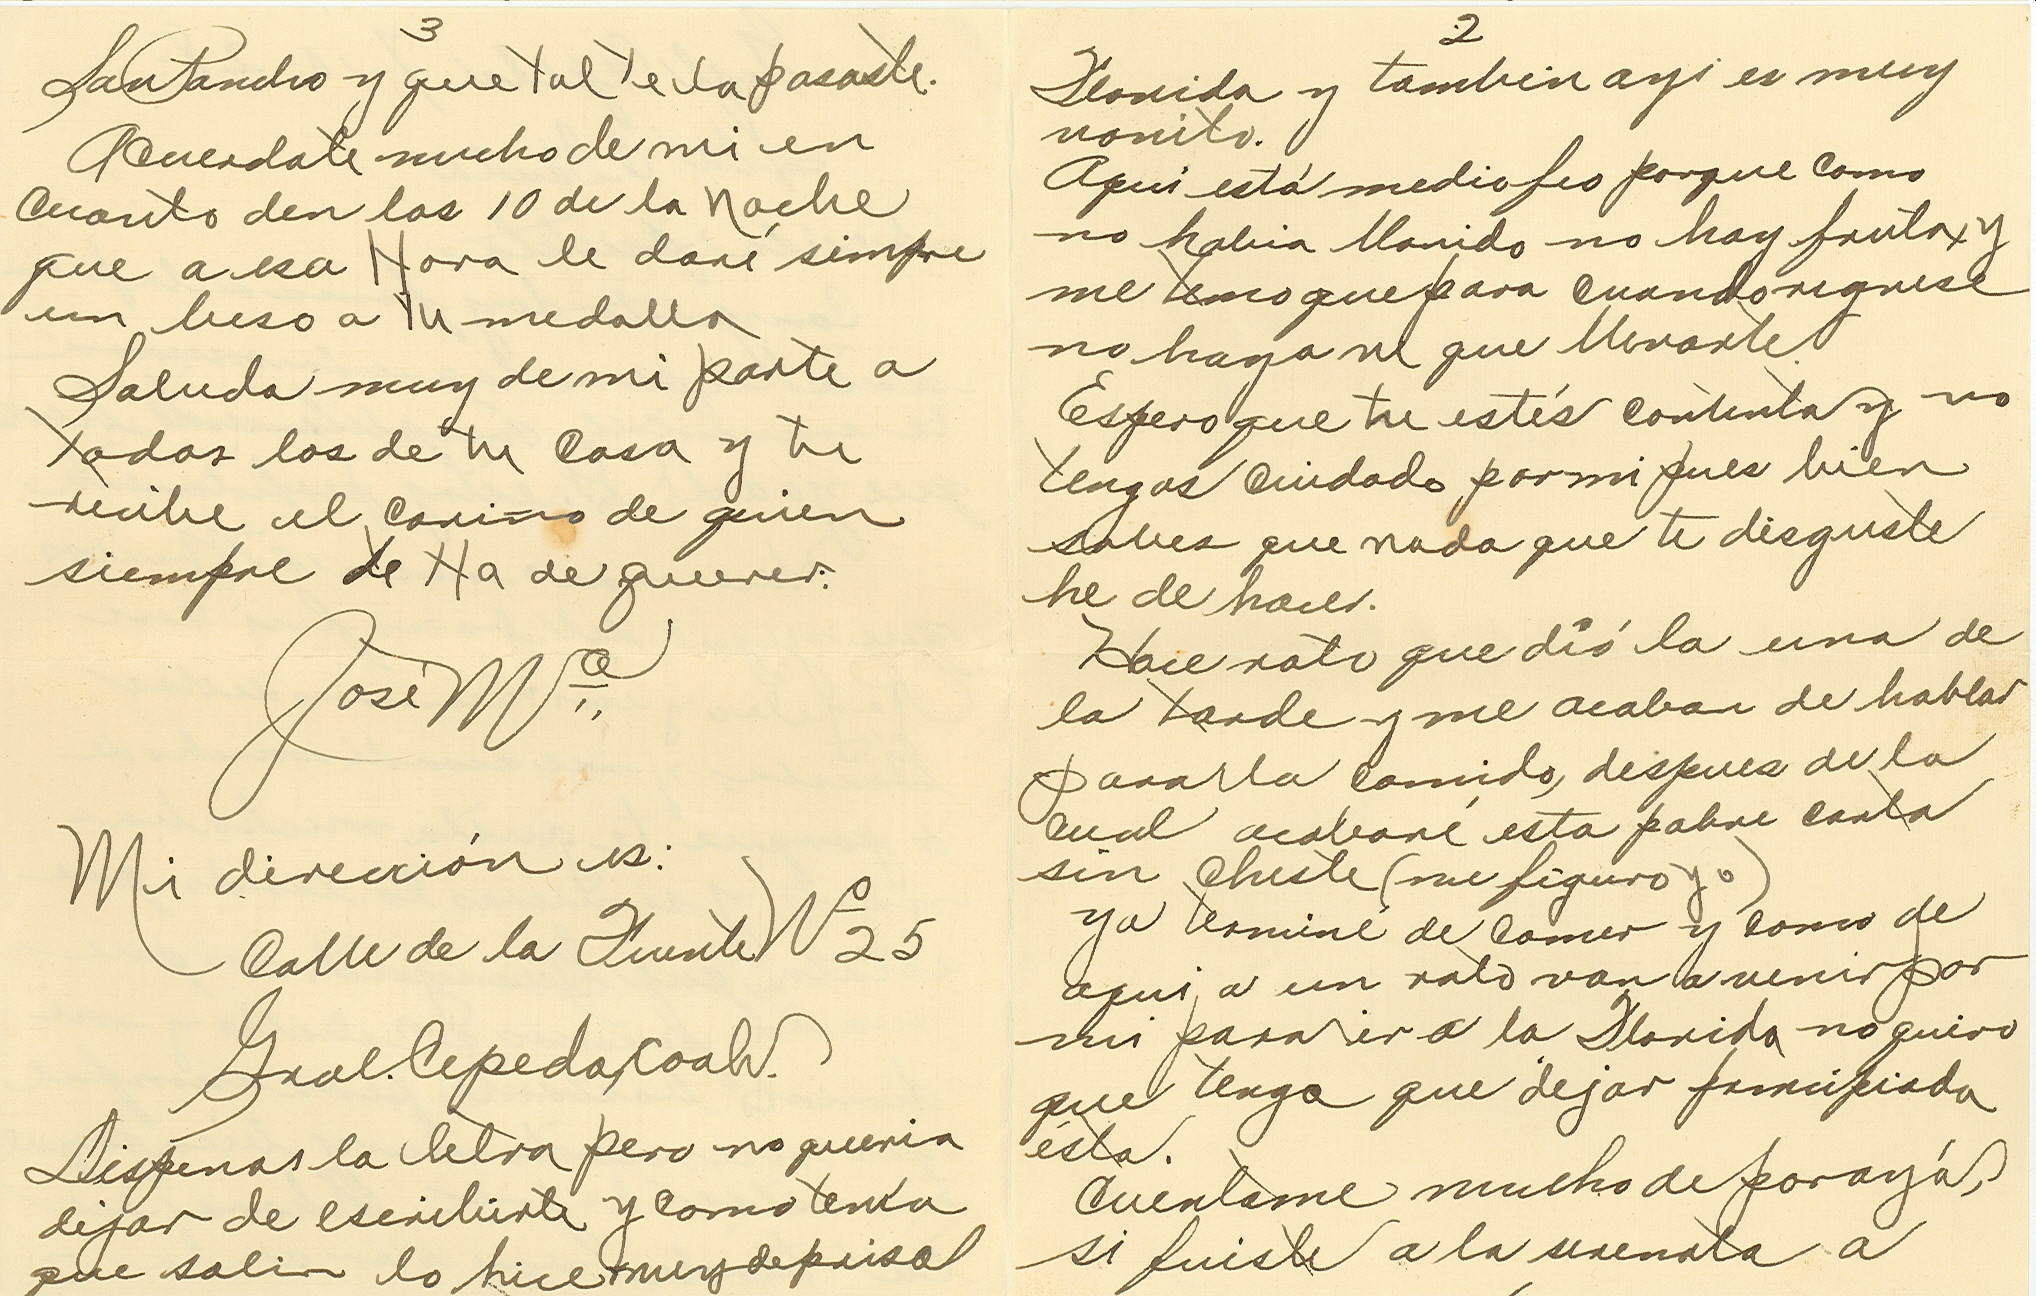 2
Florida y tambien ayi es muy
vonito.
Aqui está medio feo porque como
no habia llovido no hay fruta, y
me temo que para cuando regrese
no haya ni que llevarte.
Espero que tu estés contenta y no
tengas cuidado por mi pues bien
sabes que nada que te disguste
he de hacer.
Hace rato que dió la una de
la tarde y me acaban de hablar
para la comida, despues de la
cual acabaré esta pobre carta
sin chiste (me figuro yo)
ya terminé de comer y como de
aqui a un rato van a venir por
mi para ir a la Florida no quiro
que tenga que dejar principiada
ésta.
Cuentame mucho de por ayá,
si fuiste a la serenata a
3
San Pancho y que tal te la pasaste.
Acuerdate mucho de mi en
cuanto den las 10 de la Noche
que a esa Hora le daré simpre
un beso a tu medalla
Saluda muy de mi parte a
todos los de tu casa y tu
recibe el carino de quien
siempre te Ha de querer.
José Mª
Mi dirección es:
Calle de la Fuente Nº 25
Gral. Cepeda, Coah.
Dispensa la letra pero no queria
dejar de escribirte y como tenia
que salir lo hice muy deprisa